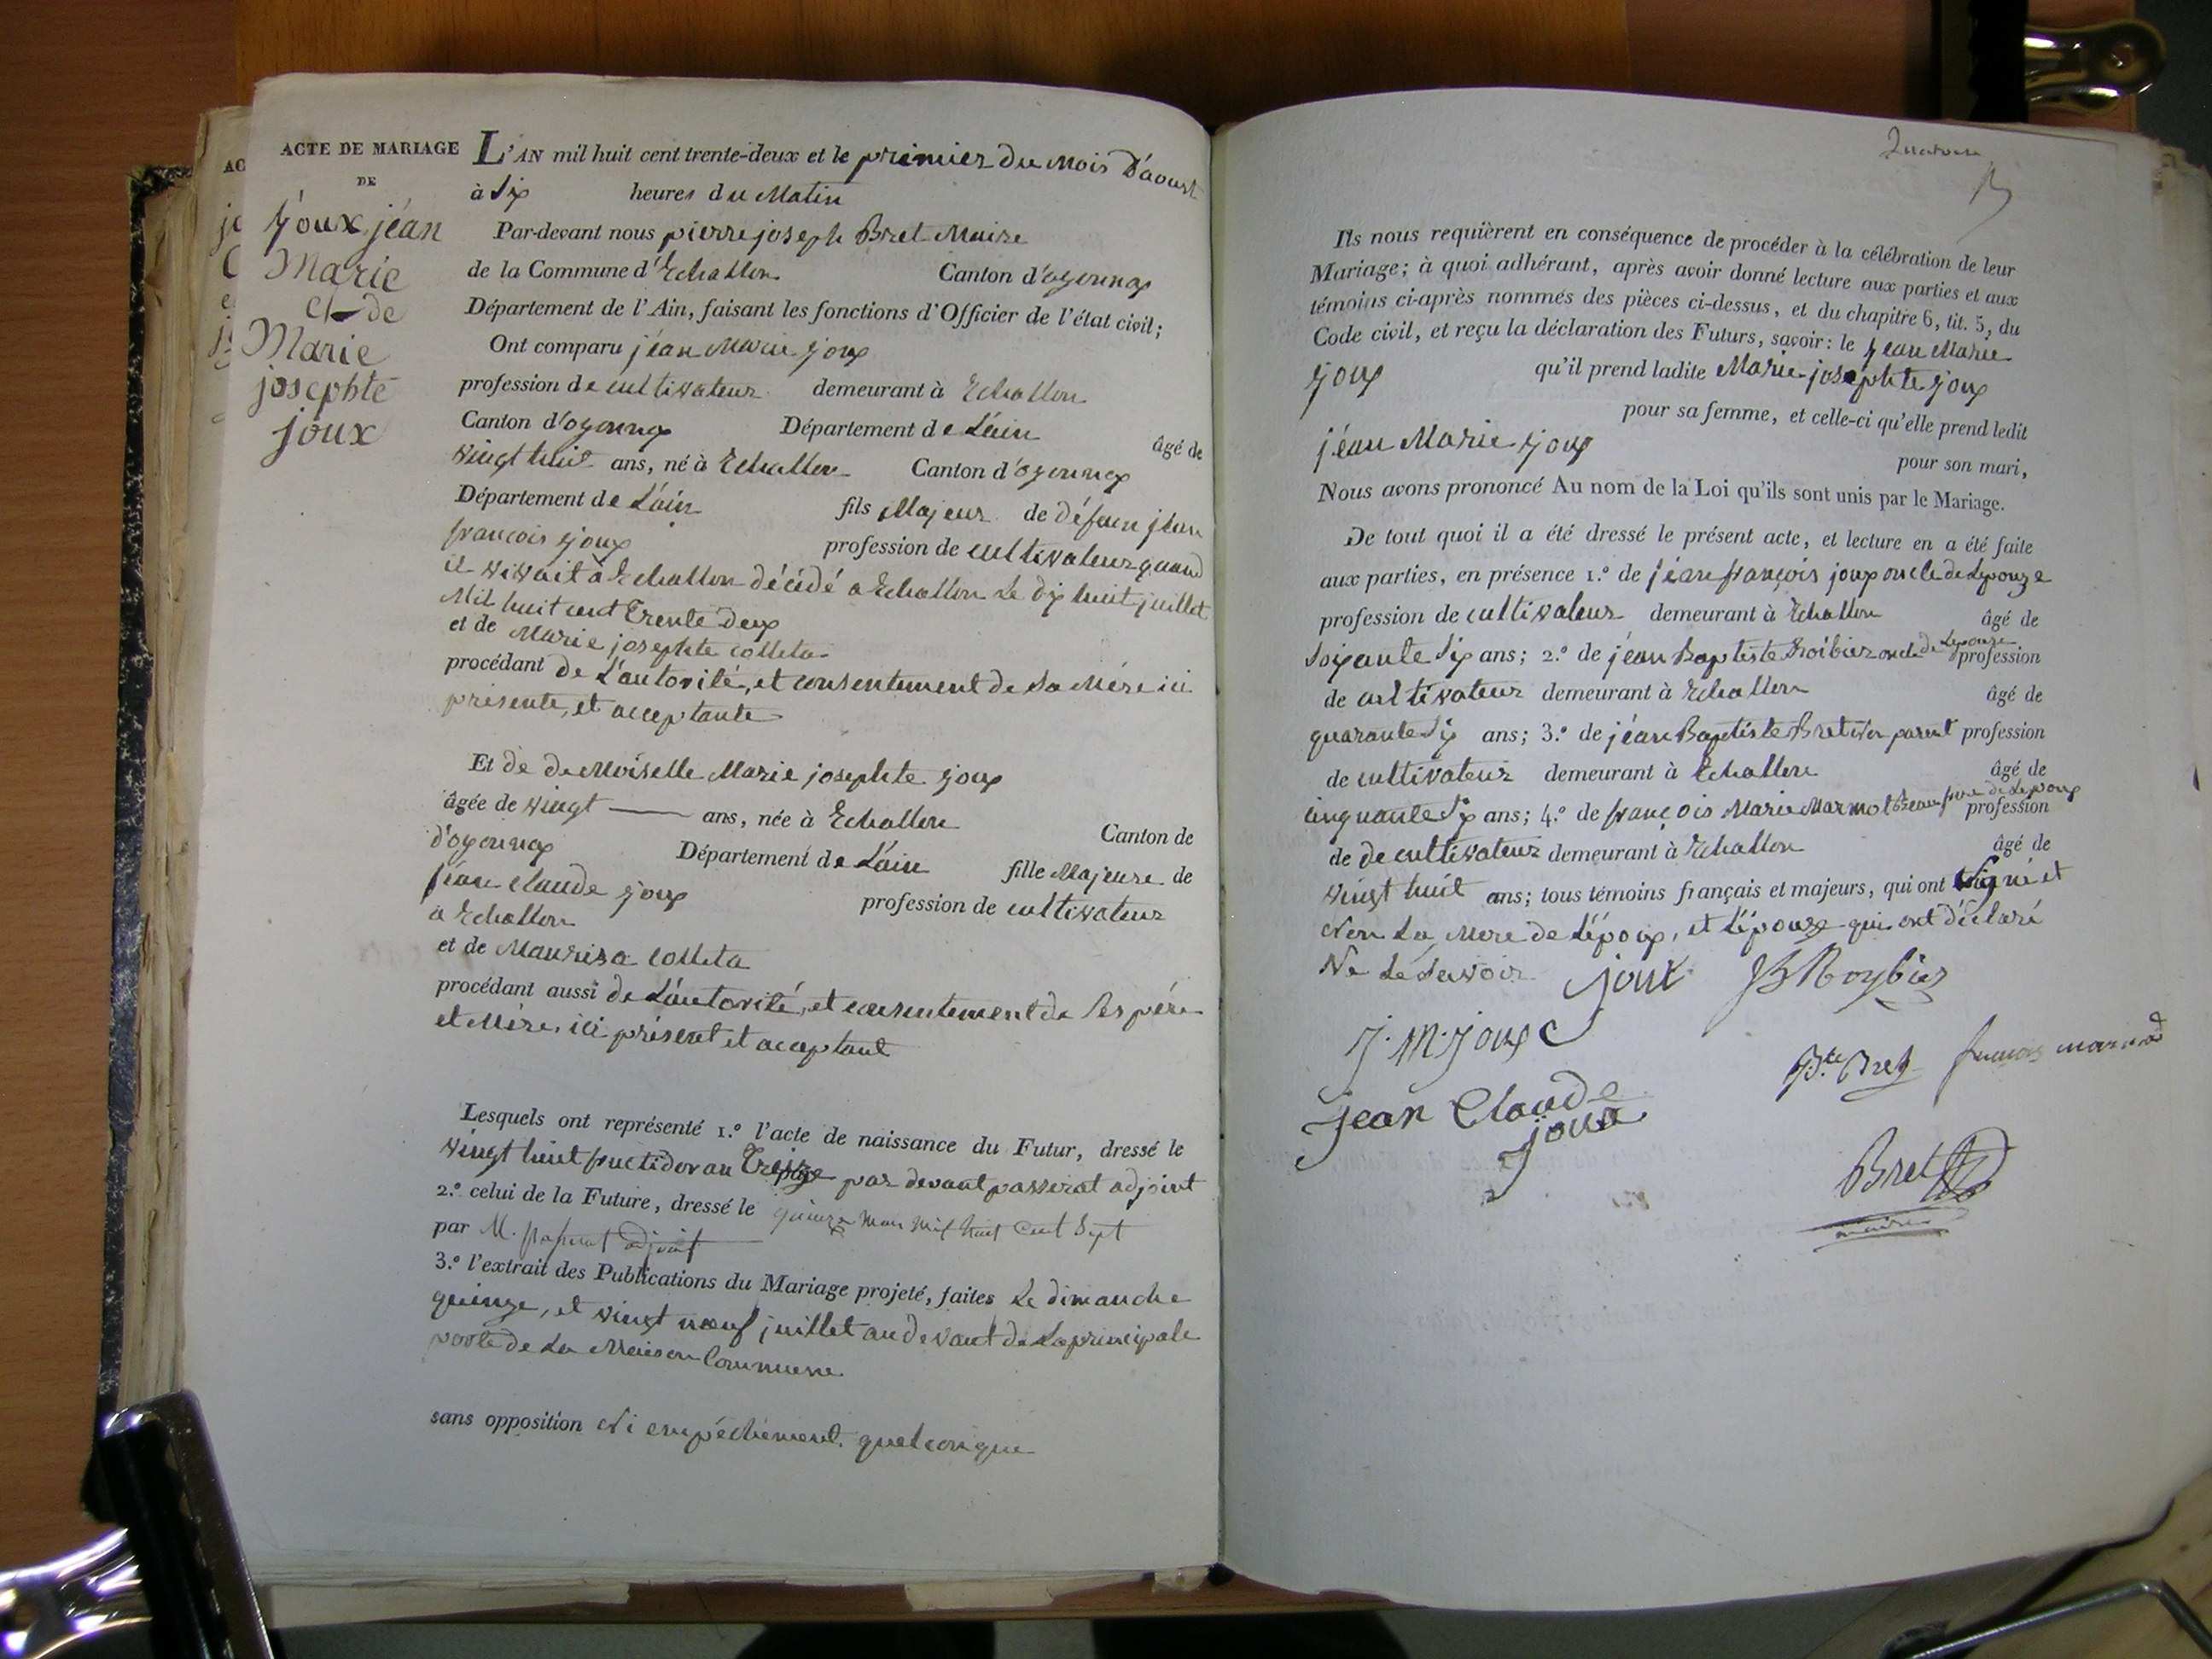 ACTE DE MARIAGE
DE
joux jéan
Marie
et de
Marie
josephte
joux
L'AN mil huit cent trente-deux et le premier du Mois D'aoust
à Six heures du Matin
Par-devant nous pierre joseph Bret Maire
de la Commune d'Echallon Canton d'oyonnax
Département de l'Ain, faisant les fonctions d'Officier de l'état civil;
Ont comparu jéan Marie joux
profession de cultivateur demeurant à Echallon
Canton d'oyonnax Département de L'ain âgé de
vingt huit ans, né à Echallon Canton d'oyonnax
Département de L'ain fils Majeur de défun jéan
françois joux profession de cultivateur quand
il vivait à Echallon décédé a Echallon Le dix huit juillet
Mil huit cent Trente Deux
et de Marie josephte colleta
procédant de L'autorité, et consentement de Sa Mére ici
présente, et acceptante
Et de deMoiselle Marie josephte joux
âgée de vingt ans, née à Echallon Canton de
d'oyonnax Département de L'ain fille Majeure de
jéan claude joux profession de cultivateur
a Echallon
et de Maurisa colleta
procédant aussi de L'autorité, et consentement de Ses pére
et Mére, ici présent et acceptant
Lesquels ont représenté 1.º l'acte de naissance du Futur, dressé le
vingt huit fructidor an Treize par devant passerat adjoint
2.º celui de la Future, dressé le quinze Mars Mil huit Cent Sept
par M. passerat adjoint
3.º l'extrait des Publications du Mariage projeté, faites Le dimanche
quinze, et vingt neuf juillet au devant de La principale
porte de La Maison Commune
sans opposition Ni empéchement quelconque
Quatorze
Ils nous requièrent en conséquence de procéder à la célébration de leur
Mariage; à quoi adhérant, après avoir donné lecture aux parties et aux
témoins ci-après nommés des pièces ci-dessus, et du chapitre 6, tit. 5, du
Code civil, et reçu la déclaration des Futurs, savoir: le jéan Marie
joux qu'il prend ladite Marie josephte joux
pour sa femme, et celle-ci qu'elle prend ledit
jéan Marie joux pour son mari,
Nous avons prononcé Au nom de la Loi qu'ils sont unis par le Mariage.
De tout quoi il a été dressé le présent acte, et lecture en a été faite
aux parties, en présence 1.º de jéan françois joux oncle de Lépouze
profession de cultivateur demeurant à Echallon âgé de
Soixante Six ans; 2.º de jéan Baptiste Roibier oncle de Lépouze profession
de cultivateur demeurant à Echallon âgé de
quarante Six ans; 3.º de jéan Baptiste Bret Non parent profession
de cultivateur demeurant à Echallon âgé de
cinquante Six ans; 4.º de françois Marie Marmot Beau frere de Lépoux profession
de de cultivateur demeurant à Echallon âgé de
vingt huit ans; tous témoins français et majeurs, qui ont Signé et
Non La Mere de L'époux, et L'épouze qui ont déclaré
Ne Le Savoir joux JB Roybier
J. M. joux
Bte Bret francois marmod
jean Claude
joux
Bret
maire